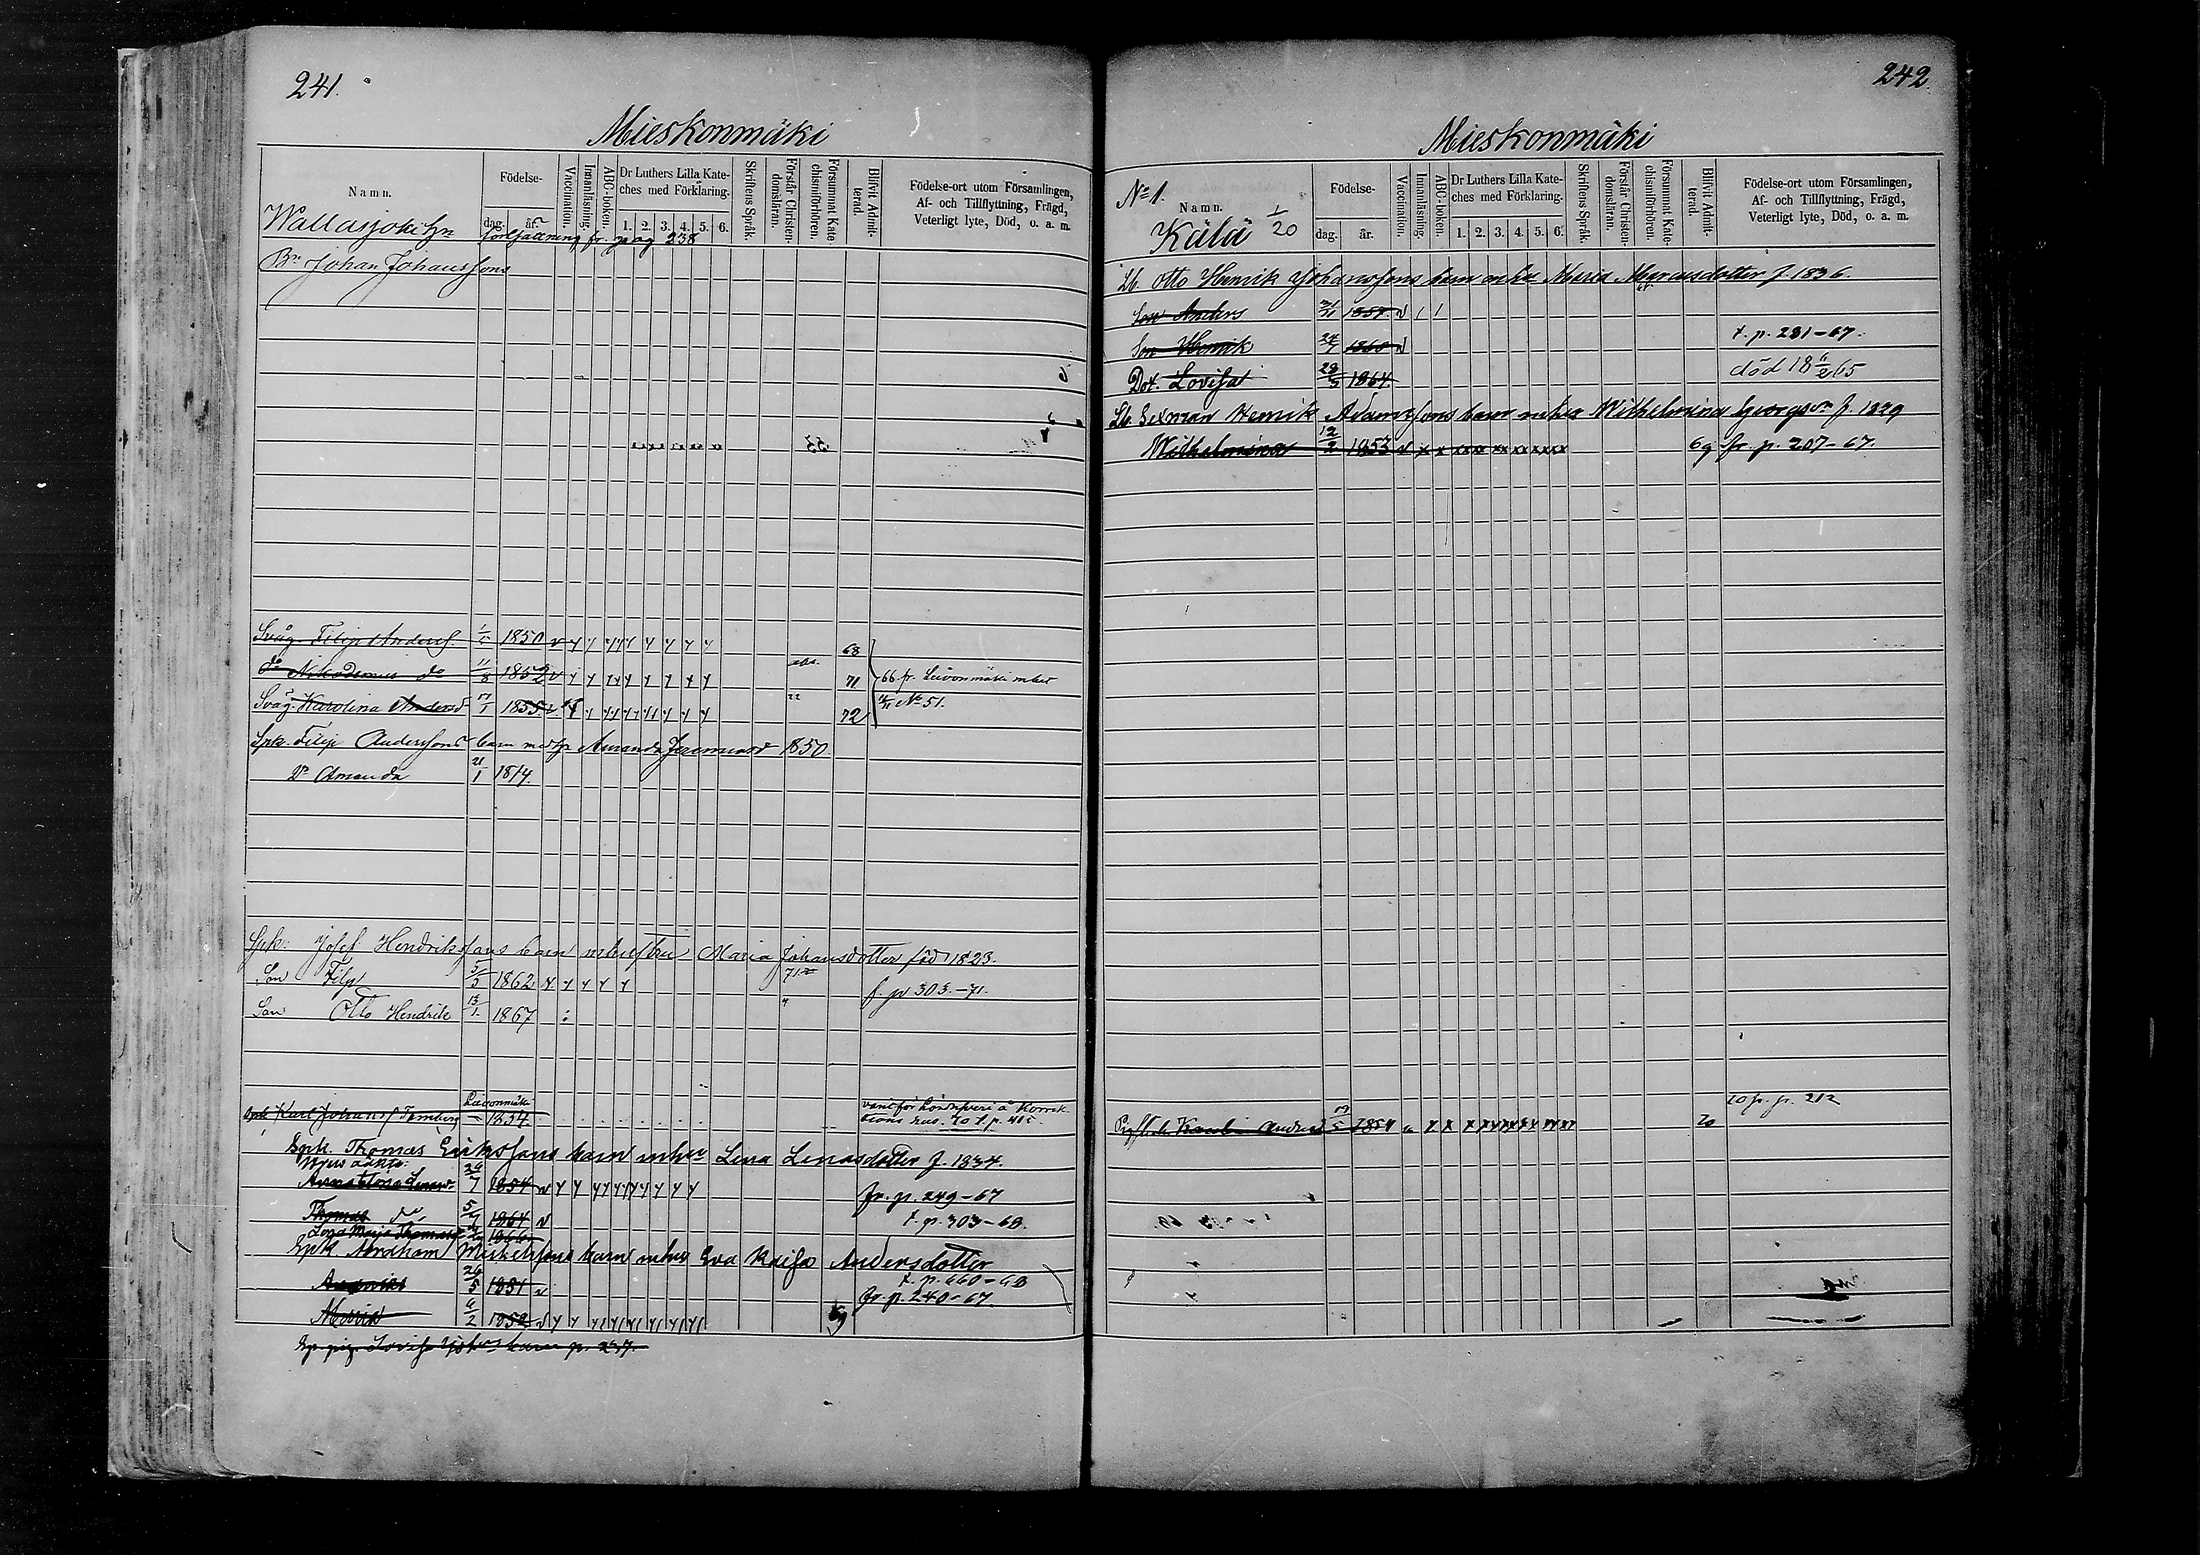 241.
Mieskonmäki
Namn.
Födelse-
dag. år.
Vaccination.
Innanläsning.
ABC-boken.
Dr Luthers Lilla Kate-
ches med Förklaring.
1. 2. 3. 4. 5. 6.
Skriftens Språk.
Förstår Christen-
domsläran.
Försummat Kate
chismiförhören.
Blifvit Admit-
terad.
Födelse-ort utom Församlingen,
Af- och Tillflyttning, Frägd,
Veterligt lyte, Död, o. a. m.
Wallasjoki hn fortsättning fr. pag 238
Bn Johan Johanssons
Svåg. Filip Anderss. 1850 68
do Nikodemus do 11/8 1852 71 66 fr. Leivonmäki mbet
Svåg. Karolina Andersd 17/1 1855 72 No 51.
Spk. Filip Anderssons barn med h. Amanda Jeremiasd 1850
Dr Amanda 21/1 1874.
Spk. Josef Hendrikssons barn m hustru Maria Johansdotter född 1823.
Son Filip 5/5 1862 f. p 303.-71.
Son Otto Hendrik 13/1 1867
Leivonmäki
Karl Johanss 1854
Spk. Thomas Erikssons barn m hu Lena Lenasdotter f. 1834.
7 1854 fr. p. 249-67
Thomas do 1864 t. p. 303-68.
Lena Maja Thomasd 1866
Spk Abraham Mickelssons barn m hu Eva Kaisa Andersdotter
t. p. 660-68
26/5 1851 fr. p. 240-67
Henrik 6/2 1852 69
Lovisa barn p. 237.
242.
Mieskonmäki
No 1.
Namn.
Kälä 1/20
Födelse-
dag. år.
Vaccination.
Innanläsning.
ABC-boken.
Dr Luthers Lilla Kate-
ches med Förklaring.
1. 2. 3. 4. 5. 6.
Skriftens Språk.
Förstår Christen-
domsläran.
Försummat Kate-
chismiförhören.
Blifvit Admit-
terad.
Födelse-ort utom Församlingen,
Af- och Tillflyttning, Frägd,
Veterligt lyte, Död, o. a. m.
Lb. Otto Henrik Johanssons barn enka Maria Marcusdotter f. 1836.
Son Anders 1857
Son Henrik 1860 t. p. 281-67.
Dot. Lovisa 28/3 1864 död 18 11/2 65
Lb. Sexman Henrik Adamssons barn m hu Wilhelmina Georgsdr f. 1829
Wilhelmina 12/2 1853 69 fr. p. 207-67.
1854 70 70 fr. p. 212